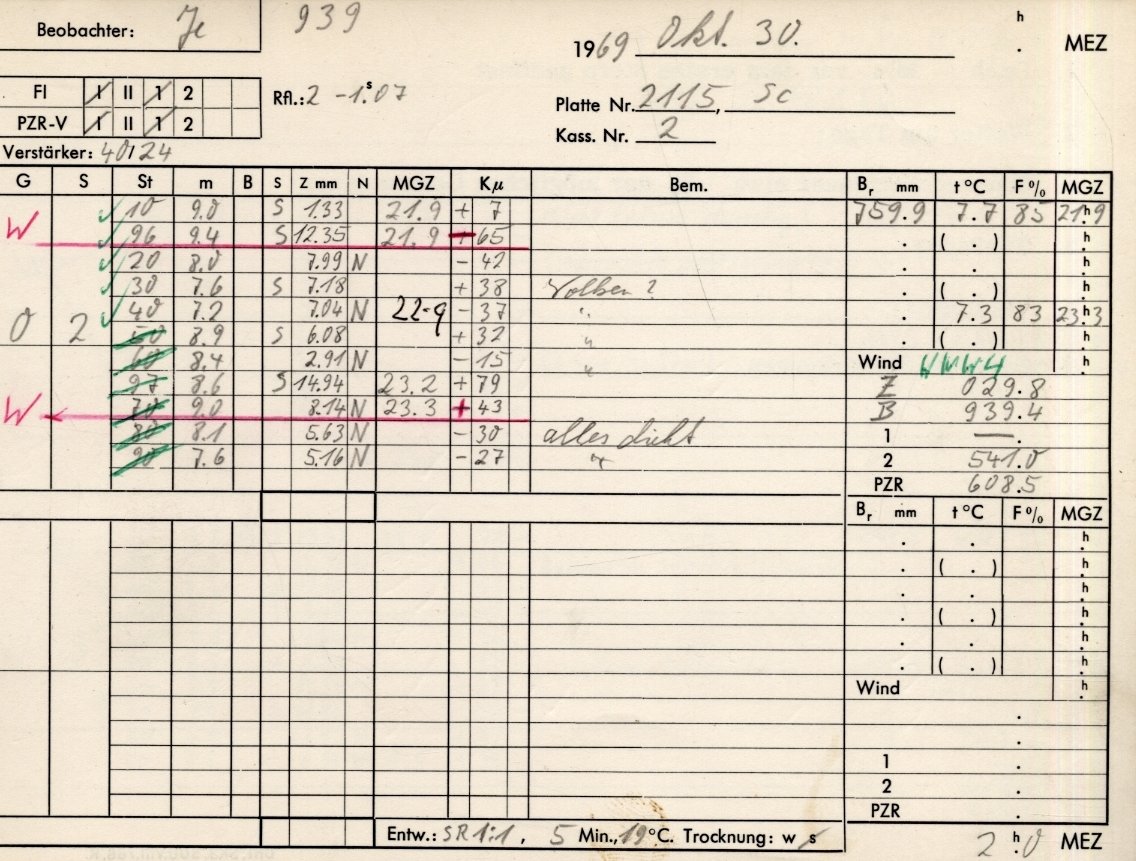 Beobachter: Je 939 h
1969 Okt. 30. . MEZ
FI I II 1 2 Rfl.: 2 -1.ˢ07
Platte Nr. 2115, Sc
PZR-V I II 1 2
Kass. Nr. 2
Verstärker: 40/24
G S St m B S Z mm N MGZ Kμ Bem. Bᵣ mm t °C F % MGZ
10 9.0 S 1.33 21.9 + 7 759.9 7.7 85 21ʰ.9
W 96 9.4 S 12.35 21.9 + 65 . ( . ) h.
20 8.0 7.99 N - 42 . . h.
30 7.6 S 7.18 + 38 Wolken ? . ( . ) h.
40 7.2 7.04 N 22.9 - 37 " . 7.3 83 23ʰ.3
0 2 50 8.9 S 6.08 + 32 " . ( . ) h.
60 8.4 2.91 N - 15 " Wind WNW4 h.
97 8.6 S 14.94 23.2 + 79 Z 029.8
W 70 9.0 8.14 N 23.3 + 43 B 939.4
80 8.1 5.63 N - 30 alles dicht 1 — .
90 7.6 5.16 N - 27 " 2 541.0
PZR 608.5
Bᵣ mm t °C F % MGZ
. . h.
. ( . ) h.
. . h.
. ( . ) h.
. . h.
. ( . ) h.
Wind h.
.
.
1 .
2 .
PZR .
Entw.: SR 1:1, 5 Min., 19°C. Trocknung: w s 2ʰ.0 MEZ